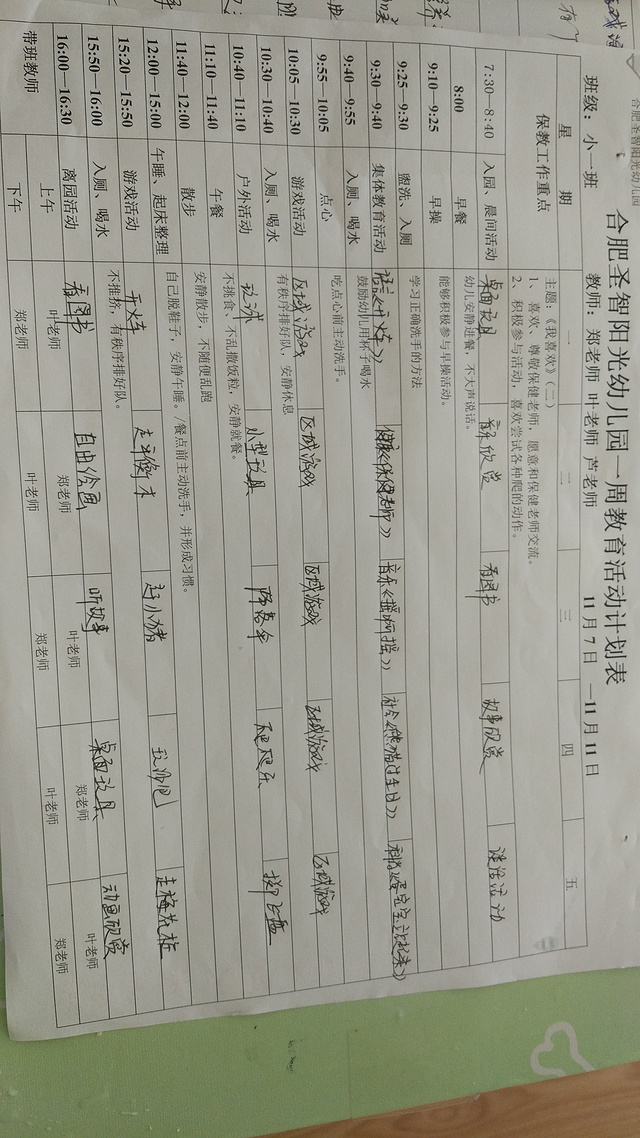 合肥圣智阳光幼儿园
合肥圣智阳光幼儿园一周教育活动计划表
班级：小一班 教师：郑老师 叶老师 芦老师 11月7日—11月11日
星期 一 二 三 四 五
保教工作重点
主题：《我喜欢》（二）
1、喜欢、尊敬保健老师，愿意和保健老师交流。
2、积极参与活动，喜欢尝试各种爬的动作。
7:30—8:40 入园、晨间活动 桌面玩具 音乐欣赏 看图书 故事欣赏 谈话活动
8:00 早餐 幼儿安静进餐，不大声说话。
9:10—9:25 早操 能够积极参与早操活动。
9:25—9:30 盥洗、入厕 学习正确洗手的方法
9:30—9:40 集体教育活动 语言《开火车》 健康《保健老师》 音乐《摇啊摇》 社会《熊猫过生日》 科学《蛋宝宝站起来》
9:40—9:55 入厕、喝水 鼓励幼儿用杯子喝水
9:55—10:05 点心 吃点心前主动洗手。
10:05—10:30 游戏活动 区域游戏 区域游戏 区域游戏 区域游戏 区域游戏
10:30—10:40 入厕、喝水 有秩序排好队，安静休息
10:40—11:10 户外活动 玩球 小型玩具 降落伞 爬爬乐 掷飞盘
11:10—11:40 午餐 不挑食、不乱撒饭粒，安静就餐。
11:40—12:00 散步 安静散步，不随便乱跑
12:00—15:00 午睡、起床整理 自己脱鞋子，安静午睡。/餐点前主动洗手，并形成习惯。
15:20—15:50 游戏活动 开火车 走平衡木 赶小猪 玩沙包 走梅花桩
15:50—16:00 入厕、喝水 不推挤，有秩序排好队。
16:00—16:30 离园活动 看图书 自由绘画 听故事 桌面玩具 动画欣赏
带班教师 上午 叶老师 郑老师 叶老师 郑老师 叶老师
下午 郑老师 叶老师 郑老师 叶老师 郑老师